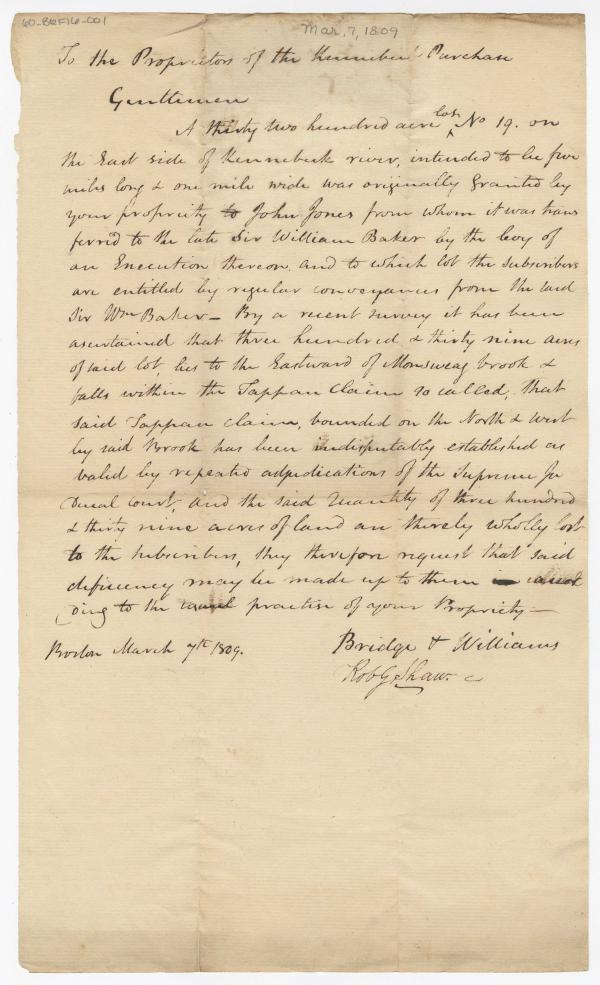 60-86F16-001
Mar. 7, 1809
To the Proprietors of the Kennebeck Purchase
Gentlemen
A thirty two hundred acre lot No 19. on
the East side of Kennebeck river, intended to be five
miles long & one mile wide was originally granted by
your propriety to John Jones from whom it was trans
ferred to the late Sir William Baker by the levy of
an Execution thereon, and to which lot the subscribers
are entitled by regular conveyances from the said
Sir Wm Baker - By a recent survey it has been
ascertained that three hundred & thirty nine acres
of said lot, lies to the Eastward of Monsweag brook &
falls within the Tappan Claim so called, that
said Tappan claim, bounded on the North & West
by said Brook has been indisputably established as
valid by repeated adjudications of the Supreme Ju
dicial court, and the said quantity of three hundred
& thirty nine acres of land are thereby wholly lost
to the subscribers, they therefore request that said
deficiency may be made up to them accor
ding to the usual practise of your Propriety -
Boston March 7th 1809.
Bridge & Williams
Rob G Shaw